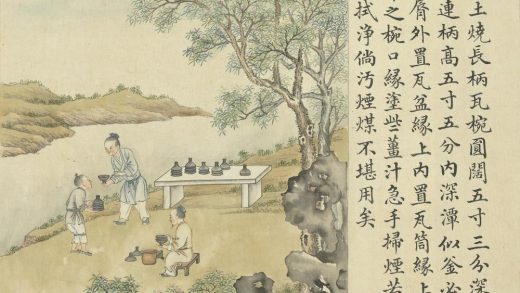 土燒長柄瓦椀圓闊五寸三分深
連柄高五寸五分內深潭似釜必
脣外置瓦盆緣上內置瓦筒緣上
之椀口緣塗些薑汁急手掃煙若
拭淨倘污煙煤不堪用矣